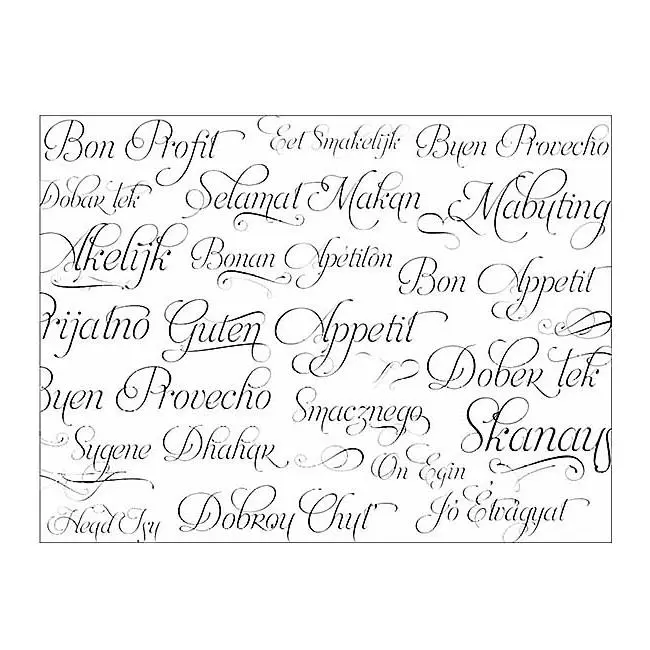 Bon Profit Eet Smakelijk Buen Provecho
Dobar tek Selamat Makan Mabuting
Akelijk Bonan Apétitón Bon Appetit
rijatno Guten Appetit
Buen Provecho Smacznego Dober tek
Sygene Dhahar On Egin Skanaus
Dobrou Chuť Jó Étvágyat